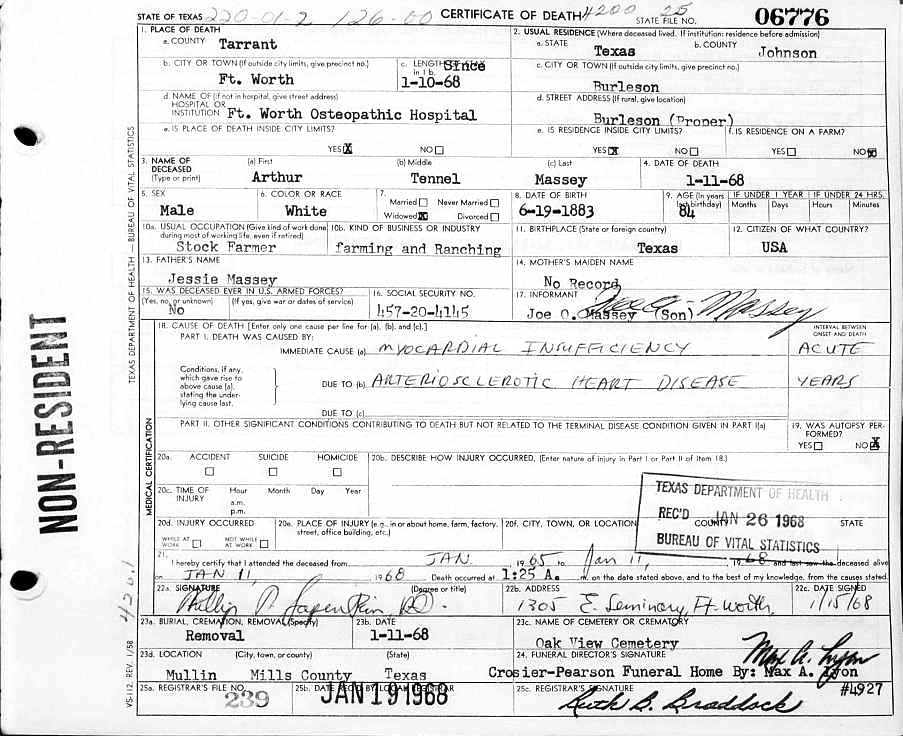 STATE OF TEXAS 220-01-2 126-00 CERTIFICATE OF DEATH 4200 25 STATE FILE NO. 06776
1. PLACE OF DEATH
a. COUNTY Tarrant
2. USUAL RESIDENCE (Where deceased lived. If institution: residence before admission)
a. STATE Texas b. COUNTY Johnson
b. CITY OR TOWN (If outside city limits, give precinct no.) Ft. Worth
c. LENGTH Since in 1 b. 1-10-68
c. CITY OR TOWN (If outside city limits, give precinct no.) Burleson
d. NAME OF (If not in hospital, give street address) HOSPITAL OR INSTITUTION Ft. Worth Osteopathic Hospital
d. STREET ADDRESS (If rural, give location) Burleson (Proper)
e. IS PLACE OF DEATH INSIDE CITY LIMITS? YES X NO
e. IS RESIDENCE INSIDE CITY LIMITS? YES X NO
f. IS RESIDENCE ON A FARM? YES NO X
3. NAME OF DECEASED (Type or print)
(a) First Arthur (b) Middle Tennel (c) Last Massey
4. DATE OF DEATH 1-11-68
5. SEX Male
6. COLOR OR RACE White
7. Married Never Married
Widowed X Divorced
8. DATE OF BIRTH 6-19-1883
9. AGE (In years last birthday) 84
IF UNDER 1 YEAR Months Days
IF UNDER 24 HRS. Hours Minutes
10a. USUAL OCCUPATION (Give kind of work done during most of working life, even if retired) Stock Farmer
10b. KIND OF BUSINESS OR INDUSTRY farming and Ranching
11. BIRTHPLACE (State or foreign country) Texas
12. CITIZEN OF WHAT COUNTRY? USA
13. FATHER'S NAME Jessie Massey
14. MOTHER'S MAIDEN NAME No Record
15. WAS DECEASED EVER IN U.S. ARMED FORCES?
(Yes, no, or unknown) No (If yes, give war or dates of service)
16. SOCIAL SECURITY NO. 457-20-4145
17. INFORMANT Joe O. Massey (Son) Joe O. Massey
18. CAUSE OF DEATH [Enter only one cause per line for (a), (b), and (c).]
INTERVAL BETWEEN ONSET AND DEATH
PART I. DEATH WAS CAUSED BY:
IMMEDIATE CAUSE (a) MYOCARDIAL INSUFFICIENCY ACUTE
Conditions, if any, which gave rise to above cause (a), stating the underlying cause last.
DUE TO (b) ARTERIOSCLEROTIC HEART DISEASE YEARS
DUE TO (c)
PART II. OTHER SIGNIFICANT CONDITIONS CONTRIBUTING TO DEATH BUT NOT RELATED TO THE TERMINAL DISEASE CONDITION GIVEN IN PART I(a)
19. WAS AUTOPSY PERFORMED? YES NO X
20a. ACCIDENT SUICIDE HOMICIDE
20b. DESCRIBE HOW INJURY OCCURRED. (Enter nature of injury in Part I or Part II of item 18.)
20c. TIME OF INJURY Hour Month Day Year
a.m.
p.m.
20d. INJURY OCCURRED
WHILE AT WORK NOT WHILE AT WORK
20e. PLACE OF INJURY (e.g., in or about home, farm, factory, street, office building, etc.)
20f. CITY, TOWN, OR LOCATION COUNTY STATE
TEXAS DEPARTMENT OF HEALTH
REC'D JAN 26 1968
BUREAU OF VITAL STATISTICS
21. I hereby certify that I attended the deceased from JAN 1965 to Jan 11, 1968 and last saw the deceased alive
on JAN 11, 1968 Death occurred at 1:25 A. m. on the date stated above, and to the best of my knowledge, from the causes stated.
22a. SIGNATURE (Degree or title) DO
22b. ADDRESS 1305 E. Seminary, Ft. Worth,
22c. DATE SIGNED 1/15/68
23a. BURIAL, CREMATION, REMOVAL (Specify) Removal
23b. DATE 1-11-68
23c. NAME OF CEMETERY OR CREMATORY Oak View Cemetery
23d. LOCATION (City, town, or county) (State)
Mullin Mills County Texas
24. FUNERAL DIRECTOR'S SIGNATURE Max A. Lyon
Crosier-Pearson Funeral Home By: Max A. Lyon #4927
25a. REGISTRAR'S FILE NO. 239
25b. DATE REC'D BY LOCAL REGISTRAR JAN 19 1968
25c. REGISTRAR'S SIGNATURE Ruth B. Braddock
NON-RESIDENT
TEXAS DEPARTMENT OF HEALTH — BUREAU OF VITAL STATISTICS
MEDICAL CERTIFICATION
VS-112, REV. 1/58